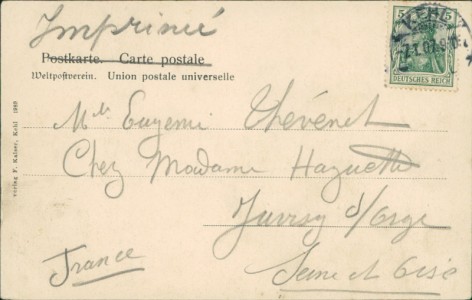 Imprimé
Postkarte. Carte postale
Weltpostverein. Union postale universelle
5
KEHL
7.1.07.
DEUTSCHES REICH
Mlle Eugenie Thévenet
Chez Madame Haguette
Juvisy s/Orge
Seine et Oise
France
Verlag F. Kaiser, Kehl 1903